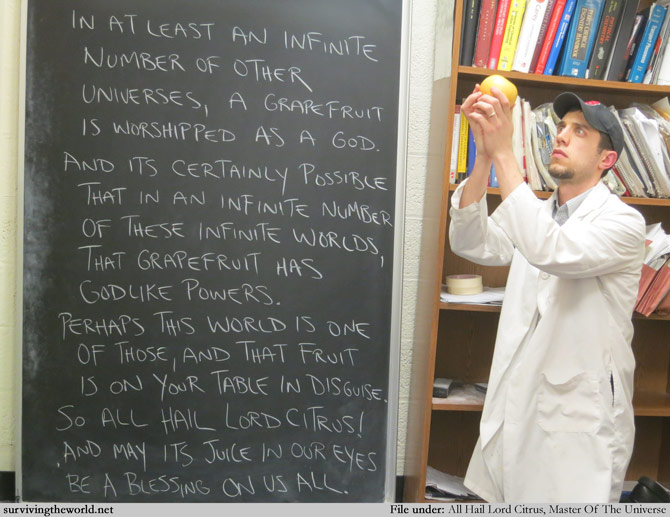 IN AT LEAST AN INFINITE
NUMBER OF OTHER
UNIVERSES, A GRAPEFRUIT
IS WORSHIPPED AS A GOD.
AND ITS CERTAINLY POSSIBLE
THAT IN AN INFINITE NUMBER
OF THESE INFINITE WORLDS,
THAT GRAPEFRUIT HAS
GODLIKE POWERS.
PERHAPS THIS WORLD IS ONE
OF THOSE, AND THAT FRUIT
IS ON YOUR TABLE IN DISGUISE.
SO ALL HAIL LORD CITRUS!
AND MAY ITS JUICE IN OUR EYES
BE A BLESSING ON US ALL.
survivingtheworld.net
File under: All Hail Lord Citrus, Master Of The Universe